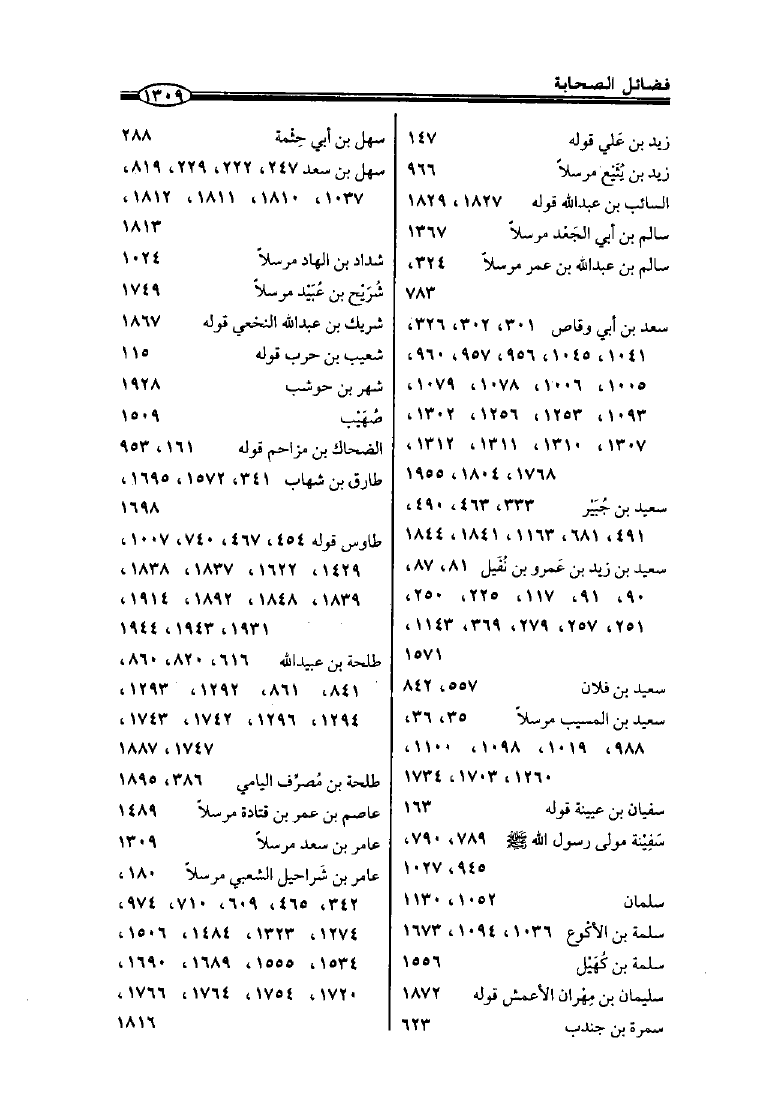 فضائل الصحابة
١٣٠٩
زيد بن عَلي قوله ١٤٧
زيد بن يُثَيْع مرسلاً ٩٦٦
السائب بن عبدالله قوله ١٨٢٧، ١٨٢٩
سالم بن أبي الجَعْد مرسلاً ١٣٦٧
سالم بن عبدالله بن عمر مرسلاً ٣٢٤،
٧٨٣
سعد بن أبي وقاص ٣٠١، ٣٠٢، ٣٢٦،
١٠٤١، ١٠٤٥، ٩٥٦، ٩٥٧، ٩٦٠،
١٠٠٥، ١٠٠٦، ١٠٧٨، ١٠٧٩،
١٠٩٣، ١٢٥٣، ١٢٥٦، ١٣٠٢،
١٣٠٧، ١٣١٠، ١٣١١، ١٣١٢،
١٧٦٨، ١٨٠٤، ١٩٥٥
سعيد بن جُبَيْر ٣٣٣، ٤٦٣، ٤٩٠،
٤٩١، ٦٨١، ١١٦٣، ١٨٤١، ١٨٤٤
سعيد بن زيد بن عَمرو بن نُفَيل ٨١، ٨٧،
٩٠، ٩١، ١١٧، ٢٢٥، ٢٥٠،
٢٥١، ٢٥٧، ٢٧٩، ٣٦٩، ١١٤٣،
١٥٧١
سعيد بن فلان ٥٥٧، ٨٤٢
سعيد بن المسيب مرسلاً ٣٥، ٣٦،
٩٨٨، ١٠١٩، ١٠٩٨، ١١٠٠،
١٢٦٠، ١٧٠٣، ١٧٣٤
سفيان بن عيينة قوله ١٦٣
سَفِيْنة مولى رسول الله ﷺ ٧٨٩، ٧٩٠،
٩٤٥، ١٠٢٧
سلمان ١٠٥٢، ١١٣٠
سلمة بن الأكْوع ١٠٣٦، ١٠٩٤، ١٦٧٣
سلمة بن كُهَيْل ١٥٥٦
سليمان بن مِهْران الأعمش قوله ١٨٧٢
سمرة بن جندب ٦٢٣
سهل بن أبي حِثْمة ٢٨٨
سهل بن سعد ٢٤٧، ٢٢٢، ٢٢٩، ٨١٩،
١٠٣٧، ١٨١٠، ١٨١١، ١٨١٢،
١٨١٣
شداد بن الهاد مرسلاً ١٠٢٤
شُرَيْح بن عُبَيْد مرسلاً ١٧٤٩
شريك بن عبدالله النخعي قوله ١٨٦٧
شعيب بن حرب قوله ١١٥
شهر بن حوشب ١٩٢٨
صُهَيْب ١٥٠٩
الضحاك بن مزاحم قوله ١٦١، ٩٥٣
طارق بن شهاب ٣٤١، ١٥٧٢، ١٦٩٥،
١٦٩٨
طاوس قوله ٤٥٤، ٤٦٧، ٧٤٠، ١٠٠٧،
١٤٢٩، ١٦٢٢، ١٨٣٧، ١٨٣٨،
١٨٣٩، ١٨٤٨، ١٨٩٢، ١٩١٤،
١٩٣١، ١٩٤٣، ١٩٤٤
طلحة بن عبيدالله ٦١٦، ٨٢٠، ٨٦٠،
٨٤١، ٨٦١، ١٢٩٢، ١٢٩٣،
١٢٩٤، ١٢٩٦، ١٧٤٢، ١٧٤٣،
١٧٤٧، ١٨٨٧
طلحة بن مُصرِّف اليامي ٣٨٦، ١٨٩٥
عاصم بن عمر بن قتادة مرسلاً ١٤٨٩
عامر بن سعد مرسلاً ١٣٠٩
عامر بن شَراحيل الشعبي مرسلاً ١٨٠،
٣٤٢، ٤٦٥، ٦٠٩، ٧١٠، ٩٧٤،
١٢٧٤، ١٣٢٣، ١٤٨٤، ١٥٠٦،
١٥٣٤، ١٥٥٥، ١٦٨٩، ١٦٩٠،
١٧٢٠، ١٧٥٤، ١٧٦٤، ١٧٦٦،
١٨١٦